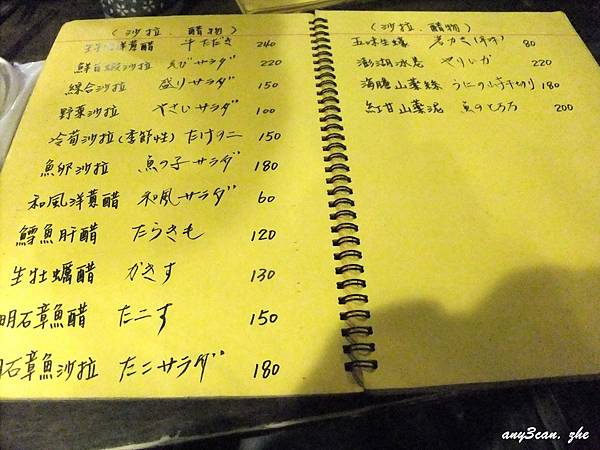 (沙拉．醋物)
洋蔥醋 牛たたき 240
鮮百蝦沙拉 えびサラダ 220
綜合沙拉 盛りサラダ 150
野菜沙拉 やさいサラダ 100
冷筍沙拉(季節性) たけのこ 150
魚卵沙拉 魚の子サラダ 180
和風洋蔥醋 和風サラダ 60
鱈魚肝醋 たらきも 120
生牡蠣醋 かきす 130
明石章魚醋 たこす 150
明石章魚沙拉 たこサラダ 180
(沙拉．醋物)
五味生蠔 岩かき 80
澎湖冰卷 やりいか 220
海膽山藥絲 うにの山千切り 180
紅甘山藥泥 魚のとろろ 200
any3can. zhe